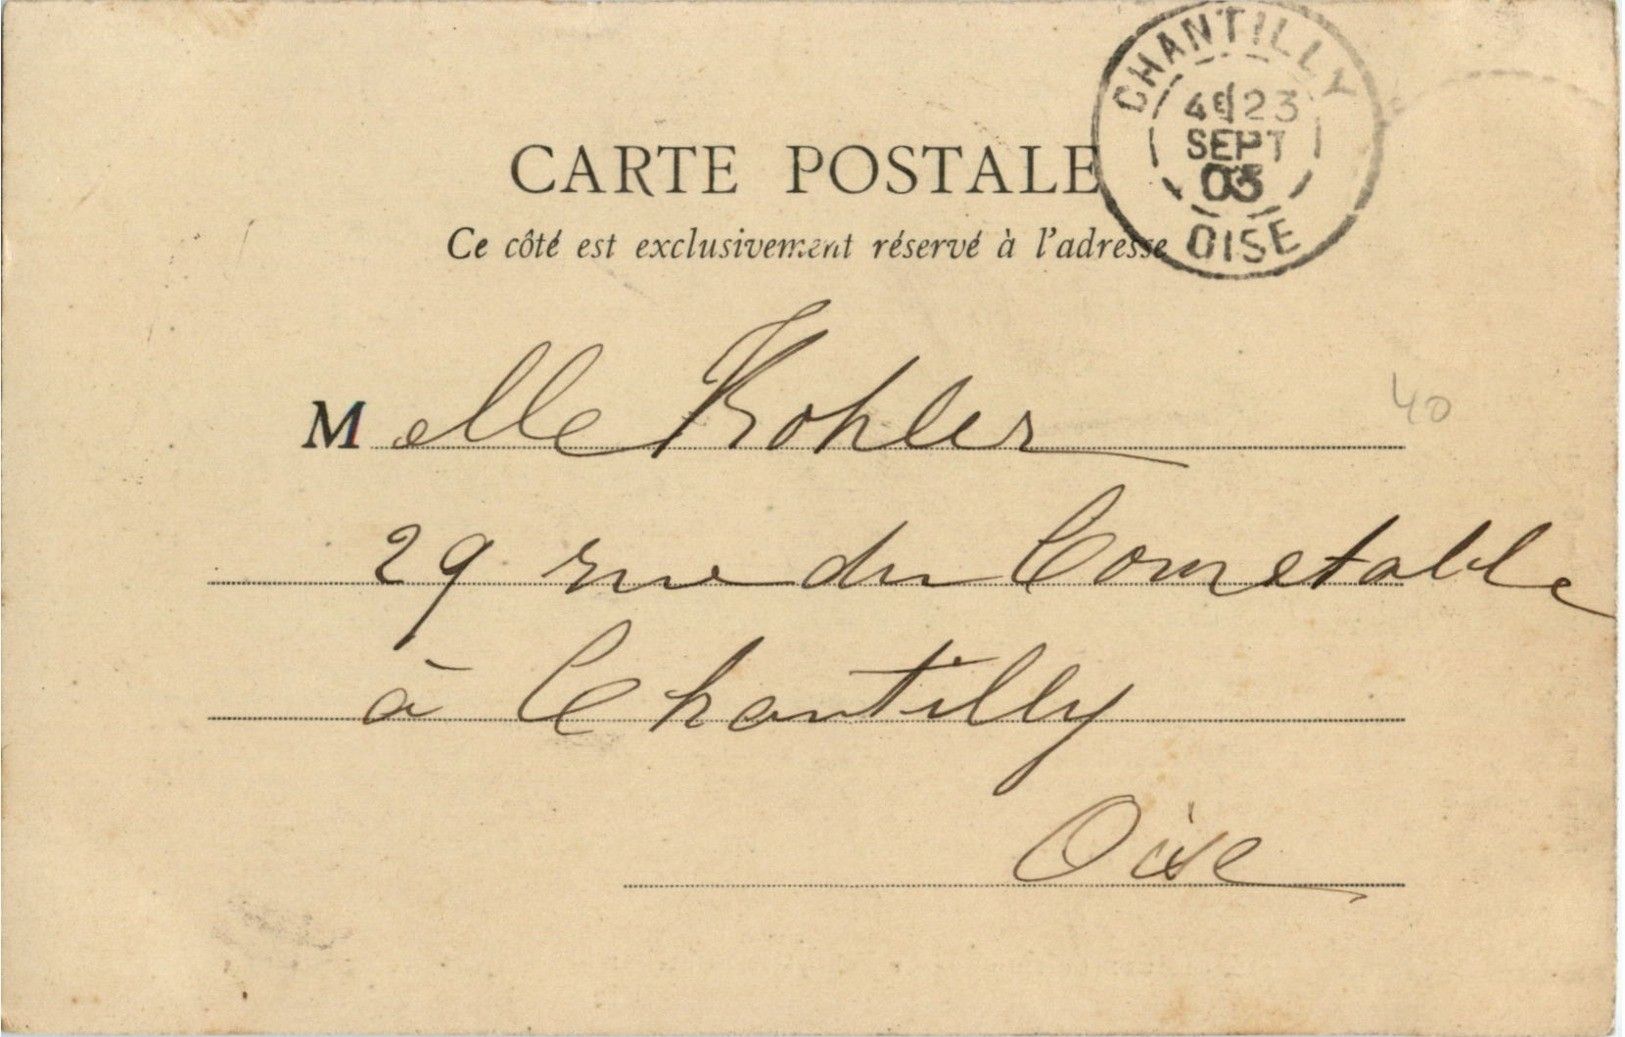 CARTE POSTALE
Ce côté est exclusivement réservé à l'adresse
CHANTILLY
4E 23
SEPT
03
OISE
Melle Kohler
40
29 rue du Connetable
à Chantilly
Oise